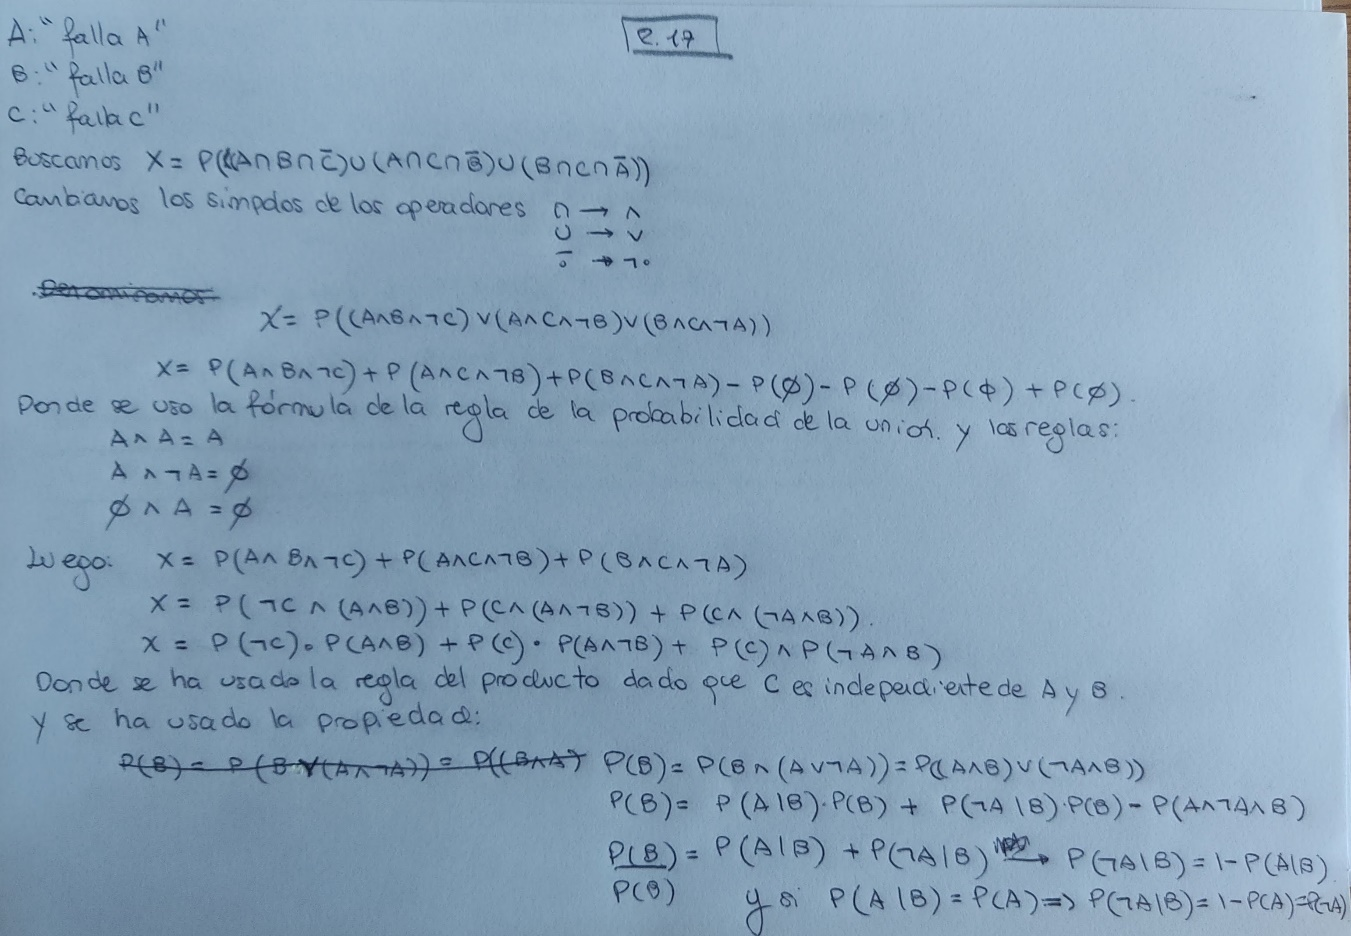 A: "falla A"
2.17
B: "falla B"
C: "falla C"
Buscamos X = P((A∩B∩C̄)∪(A∩C∩B̄)∪(B∩C∩Ā))
Cambiamos los simpolos de los operadores ∩ → ∧
∪ → ∨
‾∘ → ¬∘
X = P((A∧B∧¬C)∨(A∧C∧¬B)∨(B∧C∧¬A))
X = P(A∧B∧¬C) + P(A∧C∧¬B) + P(B∧C∧¬A) - P(∅) - P(∅) - P(∅) + P(∅).
Donde se uso la fórmula de la regla de la probabilidad de la union. y las reglas:
A∧A = A
A∧¬A = ∅
∅∧A = ∅
Luego: X = P(A∧B∧¬C) + P(A∧C∧¬B) + P(B∧C∧¬A)
X = P(¬C∧(A∧B)) + P(C∧(A∧¬B)) + P(C∧(¬A∧B)).
X = P(¬C)·P(A∧B) + P(C)·P(A∧¬B) + P(C)∧P(¬A∧B)
Donde se ha usado la regla del producto dado que C es independiente de A y B.
Y se ha usado la propiedad:
P(B) = P(B∧(A∨¬A)) = P((A∧B)∨(¬A∧B))
P(B) = P(A|B)·P(B) + P(¬A|B)·P(B) - P(A∧¬A∧B)
P(B)/P(B) = P(A|B) + P(¬A|B) → P(¬A|B) = 1-P(A|B)
y si P(A|B) = P(A) => P(¬A|B) = 1-P(A) = P(¬A)